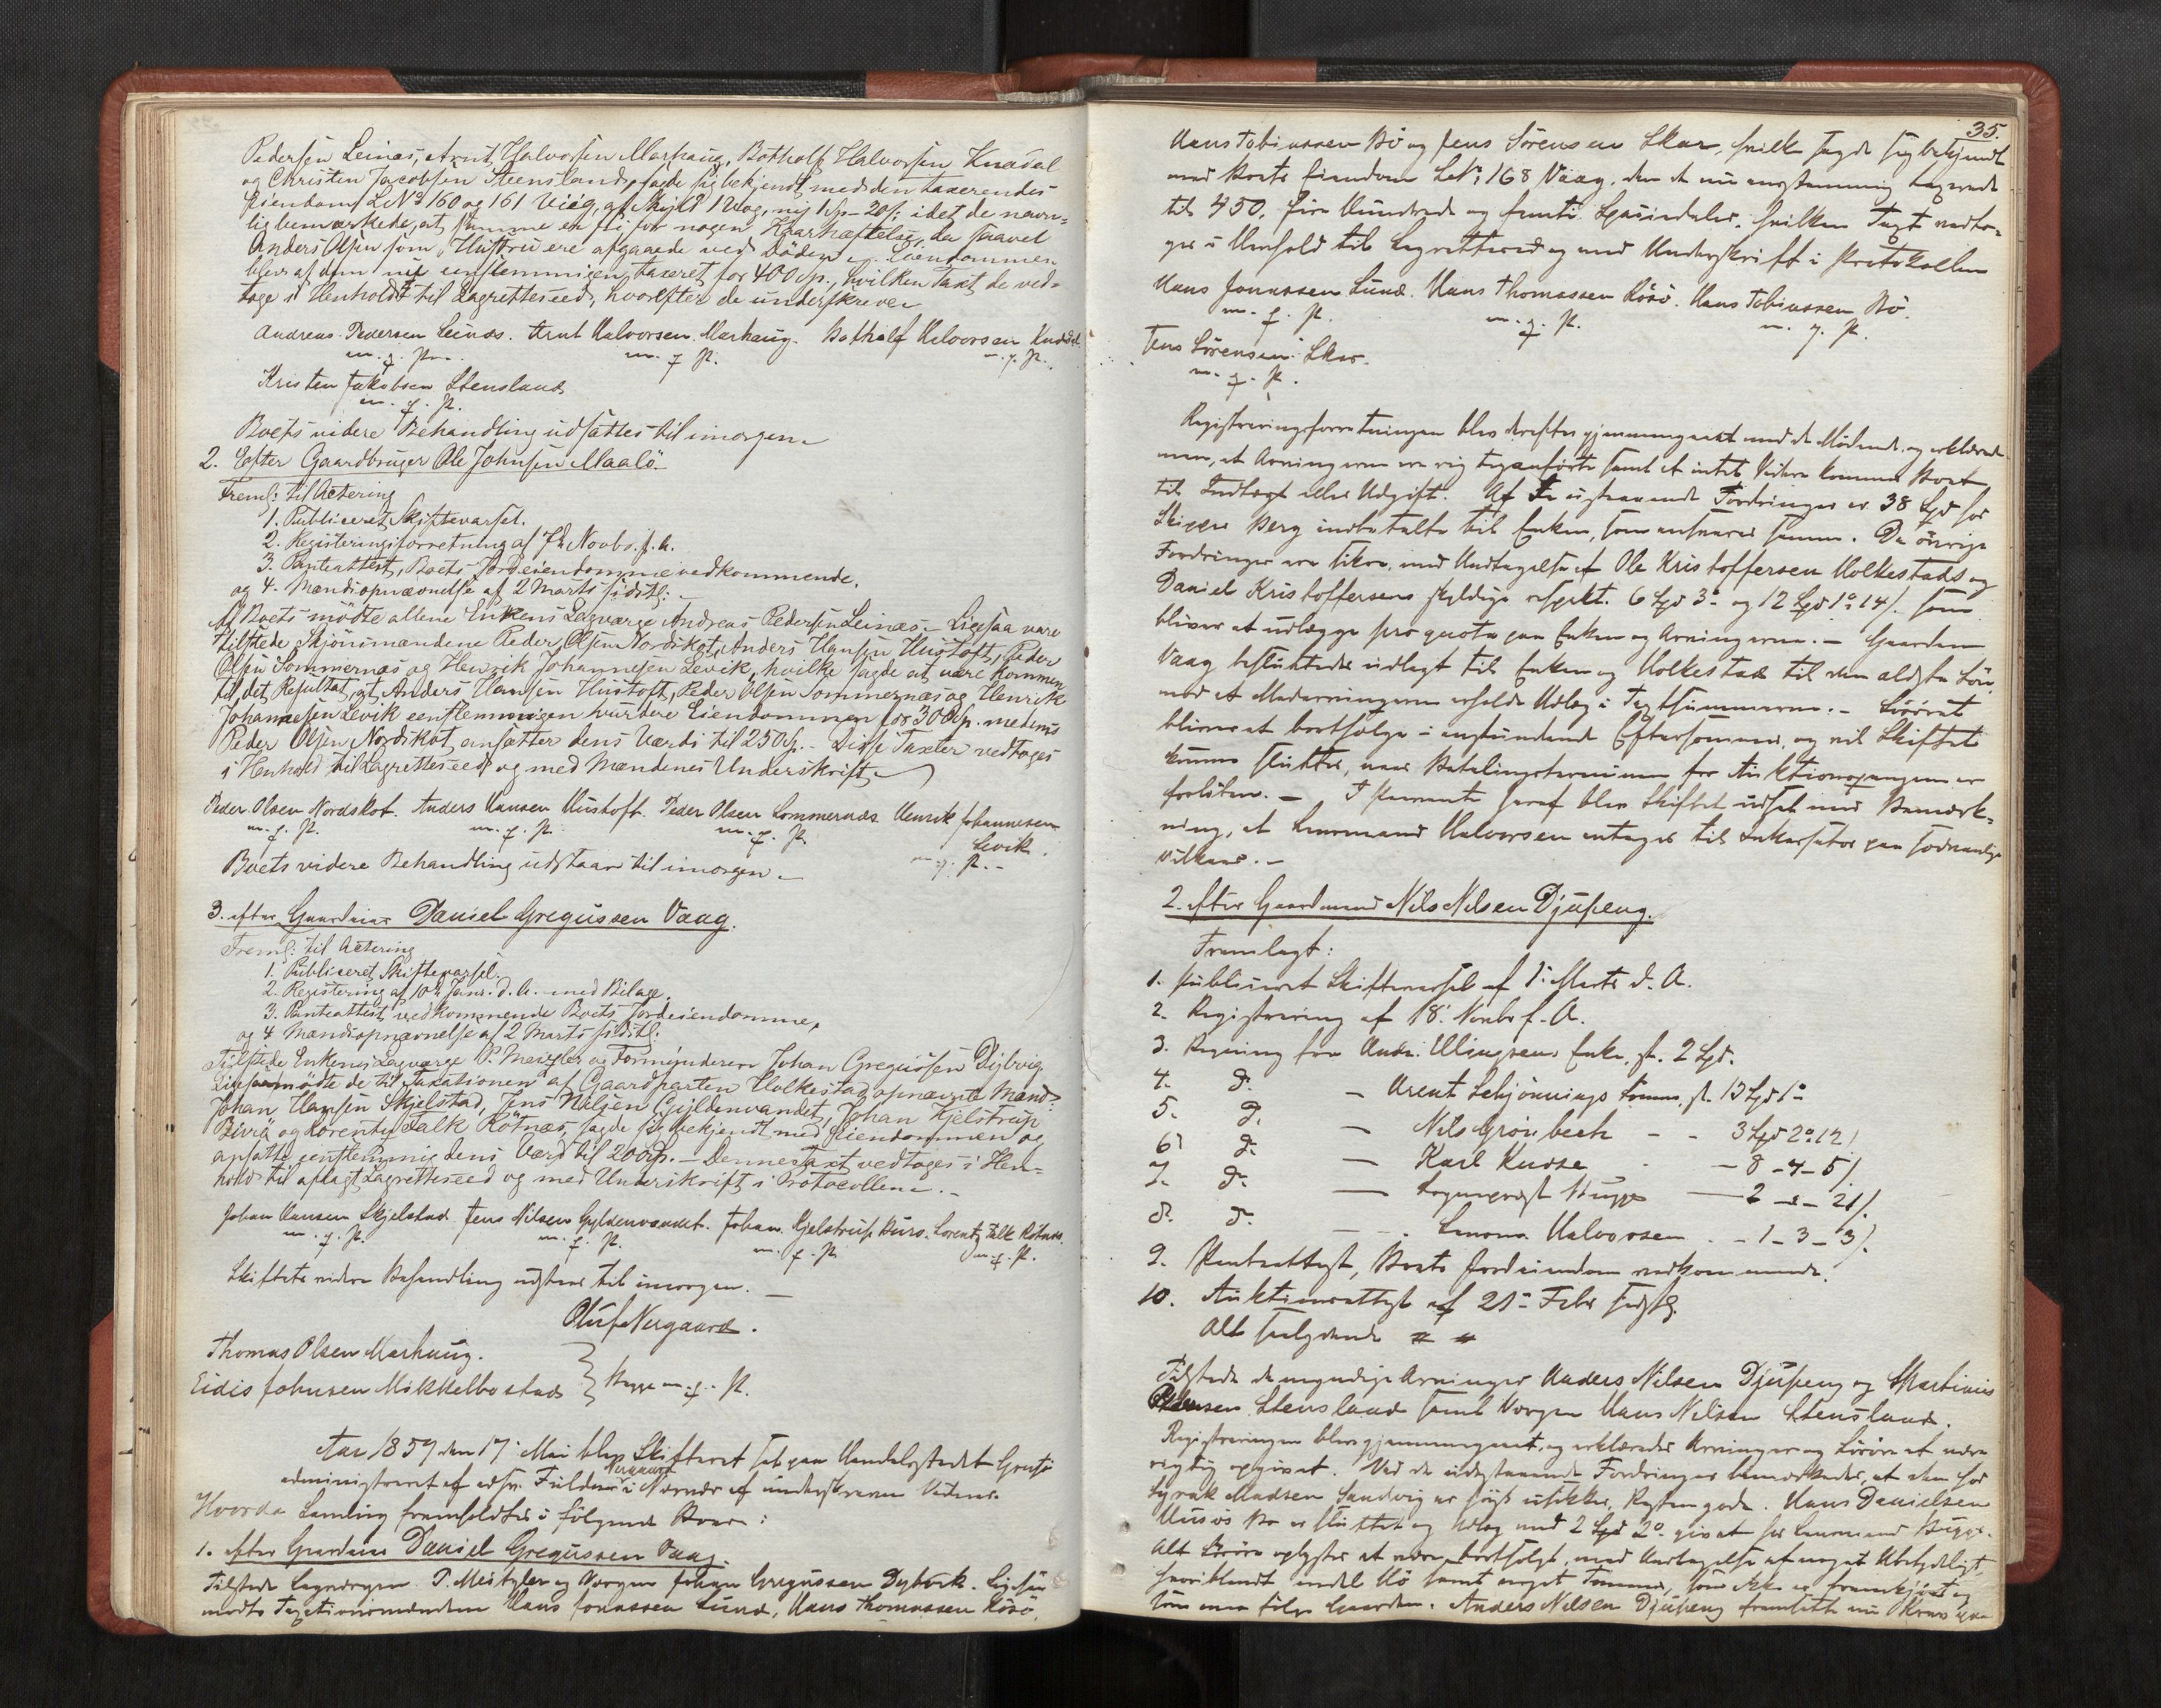 Pedersen Leinæs, Arnt Halvorsen Marhaug, Botholf Halvorsen Knædal
og Christen Jacobsen Steensland, sagde sig bekjendt med den taxerendes
Eiendom LNo 160 og 161 Vieg, af Skyld 1 Vog, ny 1 Sp - 20 s. idet de navn=
lig bemærkede, at samme er fri for nogen Kaarhæftelse, da saavel
Anders Olsen som Hustru ere afgaaede ved Døden og Eiendommen
blev af dem nu eenstemmigen taxeret for 400 Sp., hvilken Taxt de ved=
toge i Henhold til Lagretteseed, hvorefter de underskrev
Andreas Pedersen Leinæs. Arnt Halvorsen Marhaug. Botholf Halvorsen Knædal
m. f. P. m. f. P. m. f. P.
Kristen Jakobsen Stensland
m. f. P.
Boets videre Behandling udsættes til imorgen.
2. Efter Gaardbruger Ole Johnsen Maalö
Freml: til Actering
1. Publiceret Skiftevarsel.
2. Registeringsforretning af 7de Novbr. f. A.
3. Panteattest, Boets Jordeiendomme vedkommende.
og 4. Mandsopnævnelse af 2 Marts sidstl:
Af Boets mödte allene Enkens Lagværge Andreas Pedersen Leinæs. Ligesaa vare
tilstede Skjönsmændene Peder Olsen Nordskot, Anders Hansen Hustoft, Peder
Olsen Sommernæs og Henrik Johannesen Levik, hvilke sagde at være kommen
til det Resultat, at Anders Hansen Hustoft, Peder Olsen Sommernæs og Henrik
Johannesen Levik eenstemmigen vurdere Eiendommen for 300 Sp. medens
Peder Olsen Nordskot ansætter dens Værdi til 250 Sp. - Disse Taxter vedtoges
i Henhold til Lagretteseed og med Mændenes Underskrift.
Peder Olsen Nordskot. Anders Hansen Hustoft. Peder Olsen Sommernæs Henrik Johannesen
m. f. P. m. f. P. m. f. P. Levik.
Boets videre Behandling udstaar til imorgen. m. f. P.
3. efter Gaardmr Daniel Gregussen Vaag.
Freml: til Actering
1. Publiceret Skiftevarsel.
2. Registering af 10de Janr. d. A. med Bilage.
3. Panteattest vedkommende Boets Jordeiendomme,
og 4 Mandsopnævnelse af 2 Marts sidstl:
Tilstede Enkens Lagværge P. Meizler og Formynderen Johan Gregussen Dybvig
Ligesaa mödte de til Taxationen af Gaardparten Holkestad opnævnte Mænd:
Johan Hansen Skjelstad, Jens Nilsen Gyldenvandet, Johan Kjelstrup
og Lorentz Falk Rötnæs, sagde sig bekjendt med Eiendommen og
ansatte eenstemmig dens Værd til 200 Sp. - Denne Taxt vedtoges i Hen=
hold til aflagt Lagretteseed og med Underskrift i Protocollen. -
Johan Hansen Skjelstad. Jens Nilsen Gyldenvandet. Johan Kjelstrup Lorentz Falk Rötnæs.
m. f. P. m. f. P. m. f. P. m. f. P.
Skiftets videre Behandling udstaar til imorgen.
Oluf Nergaard.
Thomas Olsen Marhaug.
Eidis Johnsen Mikkelbostad m. f. P.
Aar 1859 den 17 Mai blev Skifteret sat paa Handelsstedet Gröttö
administreret af edsv. Fuldm. Nergaard i Nærvær af underskrevne Vidner.
Hvorda Samling fremholdtes i fölgende Boer:
1. efter Gaardmr Daniel Gregussen Vaag.
Tilstede Lagværgen P. Meitzler og Værgen Johan Gregussen Dybvik. Ligesaa
mödte Taxationsmændene Hans Jonassen Lund, Hans Thomassen Rösö,
35.
Hans Tobiassen Bö og Jens Sörensen Skar, hvilke sagde sig bekjendt
med Boets Eiendom LNo: 168 Vaag, den de nu eenstemmig taxerede
til 450, fire Hundrede og femti Speciedaler, hvilken Taxt vedto=
ges i Henhold til Lagretteeed og med Underskrift i Protokollen
Hans Jonassen Lund. Hans Thomassen Rösö. Hans Tobiassen Bö.
m. f. P. m. f. P. m. f. P.
Jens Sörensen Skar.
m. f. P.
Registreringsforretningen blev derefter gjennemgaaet med de Mödende og erklæredes
at Arvingerne ere rigtig anförte samt at intet Videre kommer Boet
til Indtægt eller Udgift. Af de udestaaende Fordringer er 38 Spd for
Skipper Berg indbetalte til Enken, som ansvarer samme. De övrige
Fordringer ere sikre, med Undtagelse af Ole Kristoffersen Holkestads og
Daniel Kristoffersens skyldige respekt. 6 Spd 3o og 12 Spd 1o 14 s. som
bliver at udlægge pro quota paa Enken og Arvingerne. - Gaarden
Vaag besluttedes udlagt til Enken og Holkestad til den ældste Sön,
mod at Medarvingerne erholde Udlæg i Taxtsummerne. - Lösöret
bliver at bortsælge i anstundende Eftersommer, og vil Skiftet
kunne sluttes, naar Betalingsterminen for Auktionspengene er
forlöben. - I Paavente heraf blev Skiftet udsat med Bemærk=
ning, at Lensmand Halvorsen antages til Inkassator paa sædvanlige
Vilkaar. -
2. efter Gaardmand Nils Nilsen Djupeng.
Fremlagt:
1. Publiceret Skiftevarsel af 1. Marts d. A.
2. Registrering af 18. Novbr f. A.
3. Regning fra Andr. Ellingsens Enke, st. 2 Spd.
4. Do - Arent Schjönnings st. 13 Spd 1o
5. Do - Nils Grönbech - - 3 Spd 2o 12 s.
6 Do - Karl Kudse - 8 - 4 - 5 s.
7. Do - Sogneprest - 2 - - 21 s.
8. Do - Lensm. Halvorsen - 1 - 3 - 3 s.
9. Panteattest, Boets Jordeiendom vedkommende.
10. Auktionsattest af 21de Febr sidstl.
Alt saalydende
Tilstede de myndige Arvinger Anders Nilsen Djupeng og Martinus
Stensland samt Værgen Hans Nilsen Stensland.
Registreringen blev gjennemgaaet, og erklæredes Arvinger og Lösöre at være
rigtig opgivet. Ved de udestaaende Fordringer bemærkedes, at den hos
Syrak Madsen Sandvig er höist usikker, Resten gode. Hans Danielsen
Bo er sluttet og Udlæg med 2 Spd 2o givet hos Lensmand
Alt Lösöre oplystes at være bortsolgt, med Undtagelse af noget Ubetydeligt,
hvoriblandt endel Hö samt noget Tömmer, som ikke er fremkjört og
som maa fölge Gaarden. Anders Nilsen Djupeng fremsatte nu Krav paa